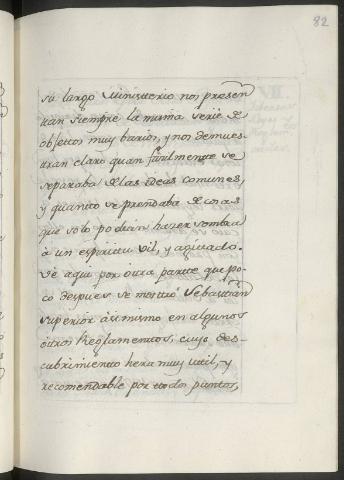 82
su largo Ministerio nos presen
tan siempre la misma serie de
obgettos muy barios, y nos demues
tran claro quan facilmente se
separaba de las ideas comunes,
y quanto se prendaba de cosas
que solo podian hazer sombra
à un espiritu vil, y apocado.
Ve aqui por otra partte que po-
co despues se mosttró Sebasttián
superior à si mismo en algunos
otros Reglamenttos, cuyo des-
cubrimiento hera muy util, y
recomendable por ttodos punttos,
VII.